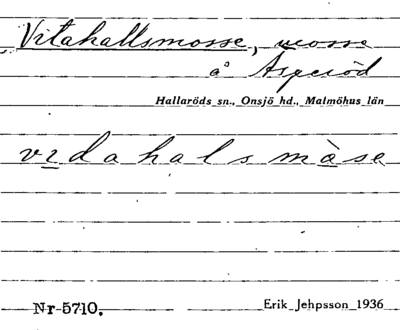 Vitahallsmosse, mosse
å Äsperöd
Hallaröds sn., Onsjö hd., Malmöhus län
vıdahalsmàse
Nr 5710.
Erik Jehpsson 1936